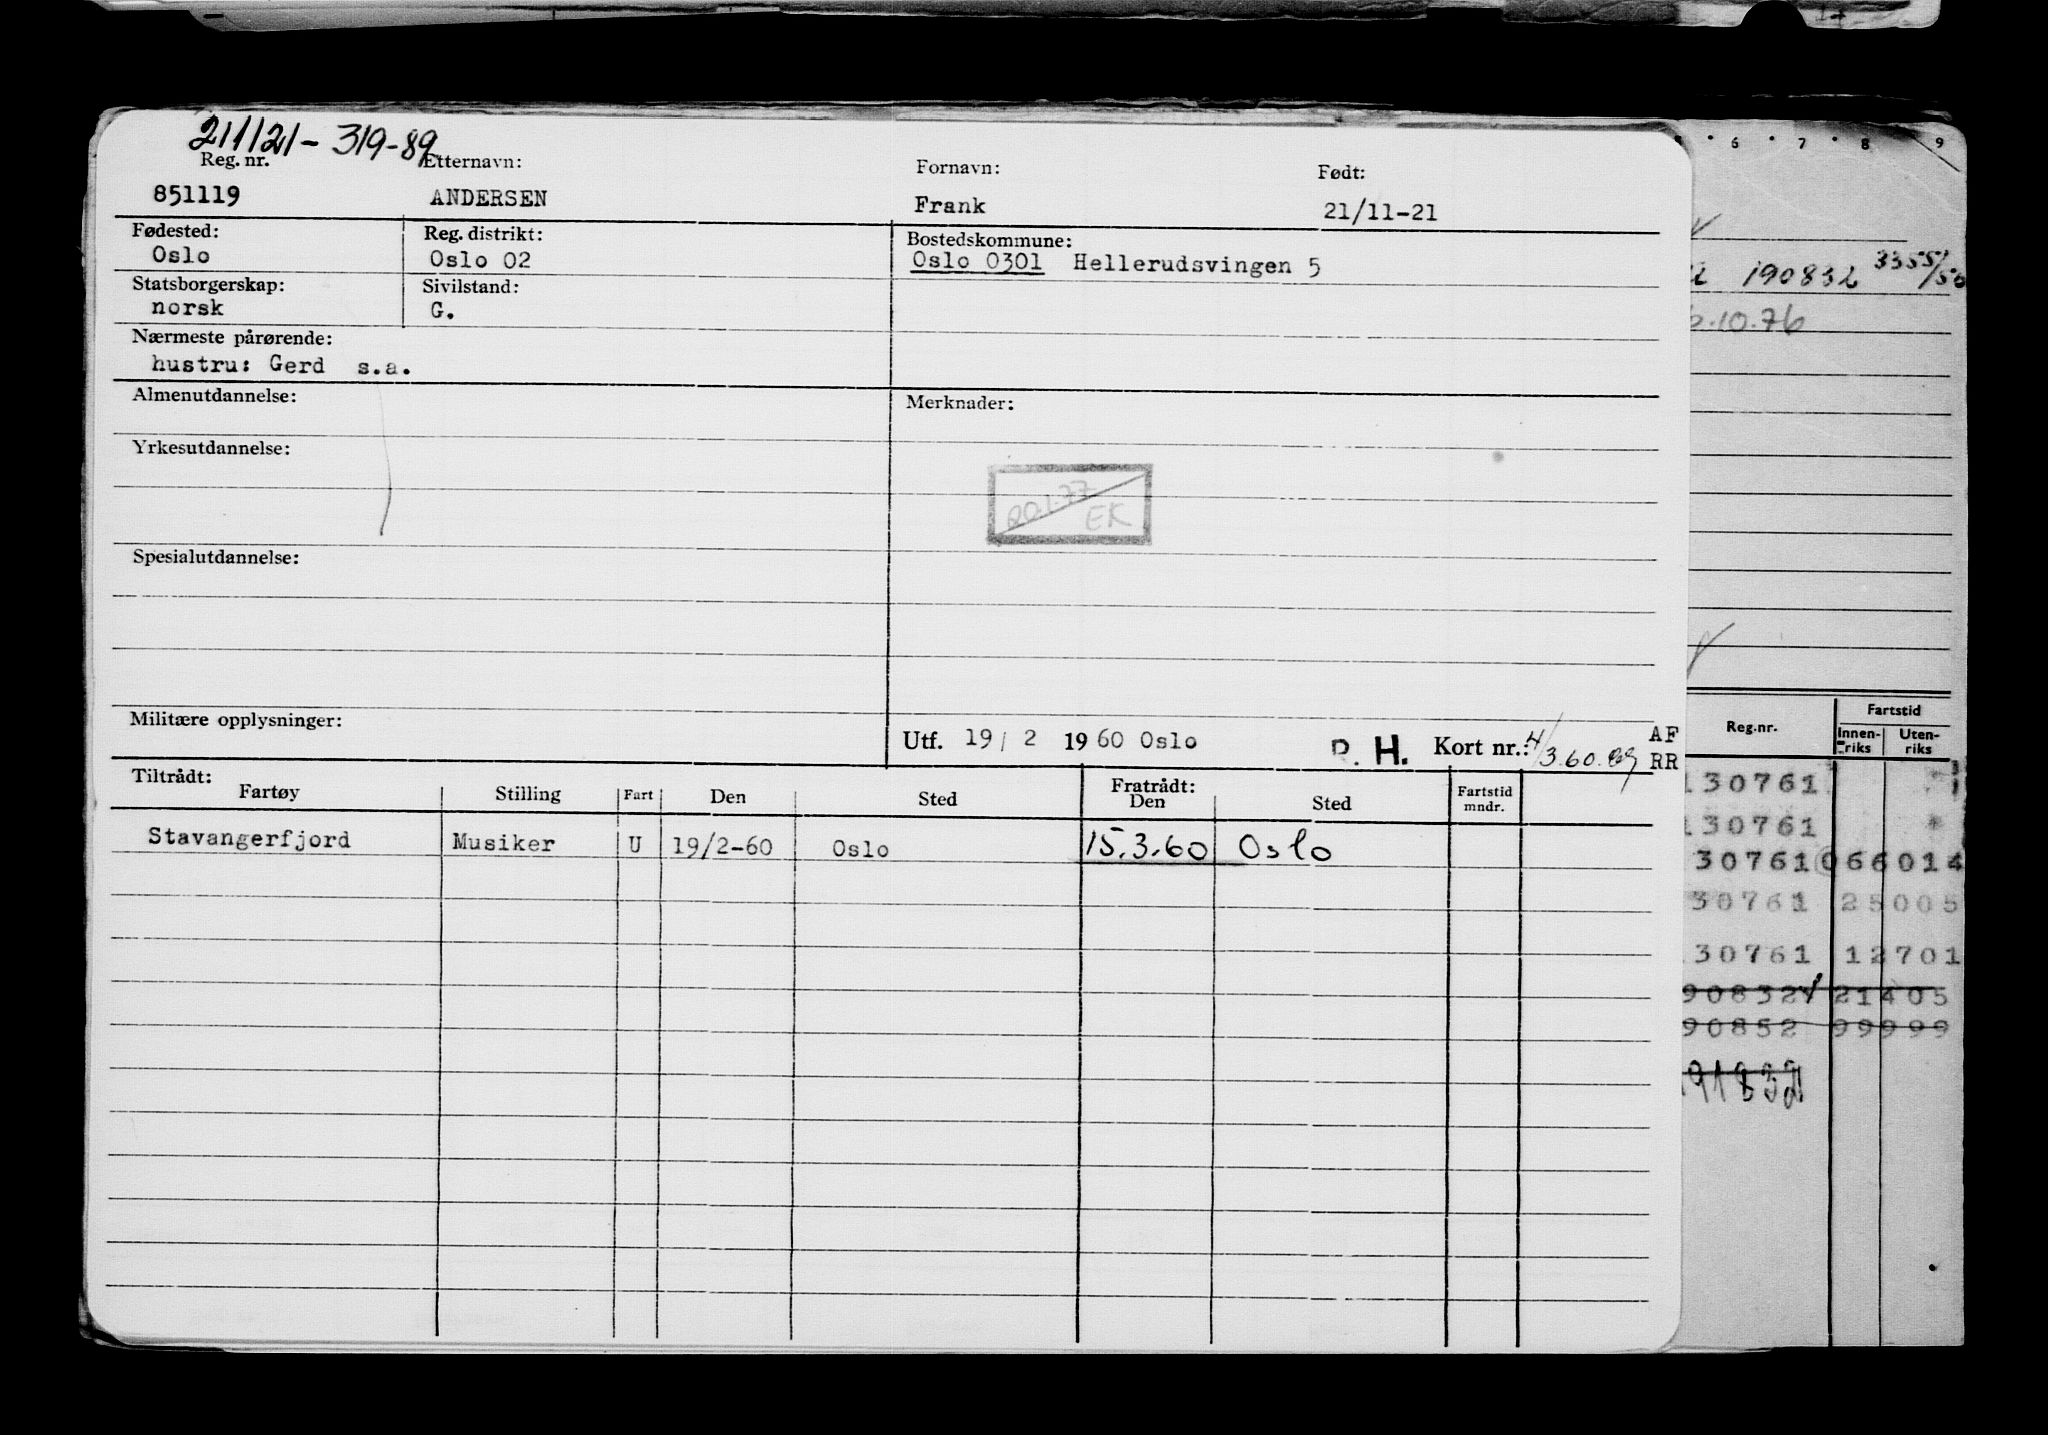 211121-319-89
Reg. nr. Etternavn: Fornavn: Født:
851119 ANDERSEN Frank 21/11-21
Fødested: Reg. distrikt: Bostedskommune:
Oslo Oslo 02 Oslo 0301 Hellerudsvingen 5
Statsborgerskap: Sivilstand:
norsk G.
Nærmeste pårørende:
hustru: Gerd s.a.
Almenutdannelse: Merknader:
Yrkesutdannelse:
20.1.77
EK
Spesialutdannelse:
Militære opplysninger:
Utf. 19/ 2 1960 Oslo R. H. Kort nr.: 4/3.60. AF
RR
Tiltrådt: Fratrådt:
Fartøy Stilling Fart Den Sted Den Sted Fartstid mndr.
Stavangerfjord Musiker U 19/2-60 Oslo 15.3.60 Oslo
6 7 8 9
190832 3355/50
.10.76
Reg.nr. Fartstid
Innen-riks Uten-riks
130761
130761
30761 066014
30761 25005
30761 12701
90832 21405
90852 99999